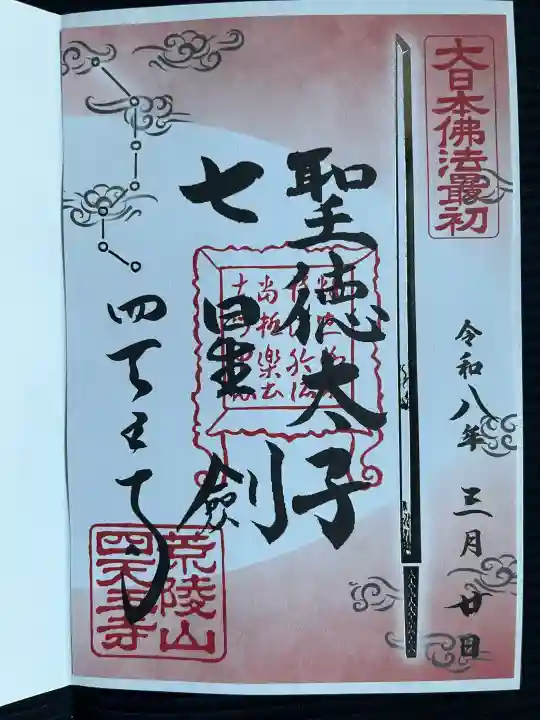 大日本佛法最初
令和八年三月廿日
聖徳太子
七星剣
四天王寺
荒陵山
四天王寺